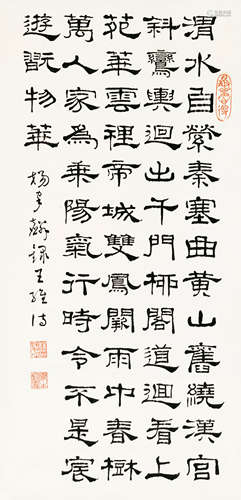 渭水自縈秦塞曲黄山舊繞漢宮
斜鸞輿迴出千門桺閣道迴看上
苑華雲裡帝城雙鳳闕雨中春樹
萬人家為乘陽氣行時令不是宸
遊翫物華
錄王維詩